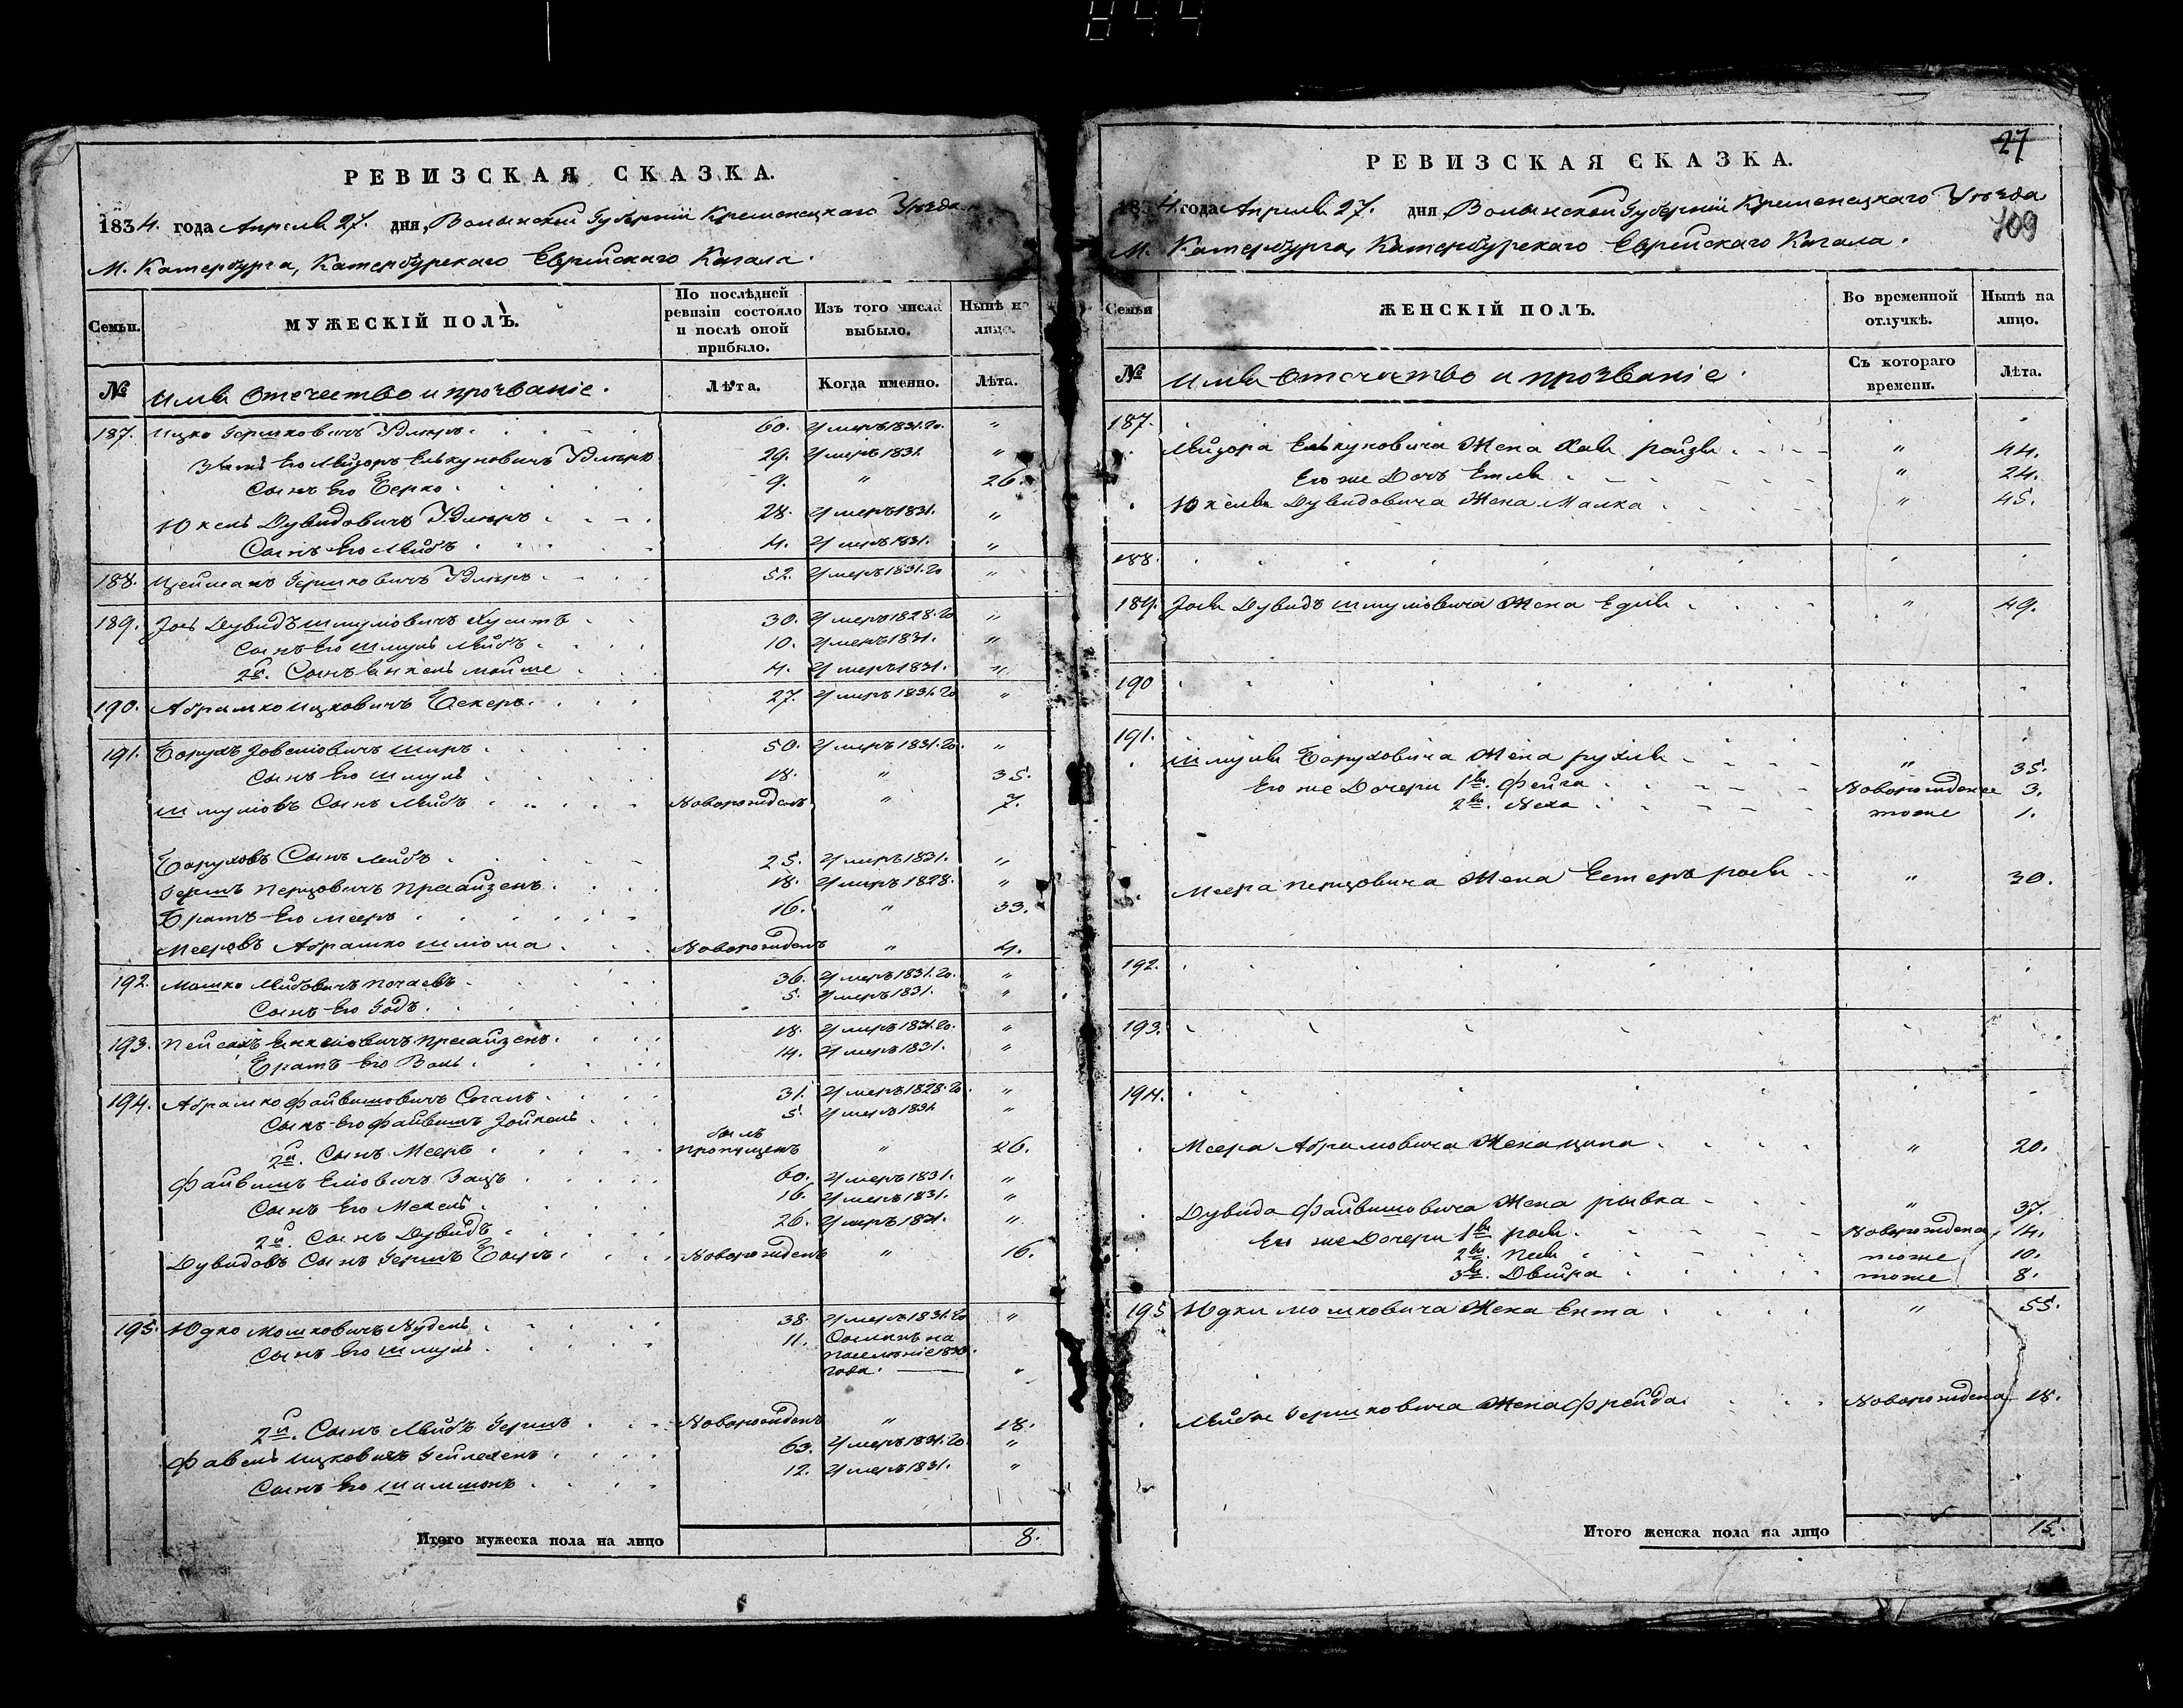 844
РЕВИЗСКАЯ СКАЗКА.
1834. года Апреля 27. дня, Волынской Губерніи Кременецкаго Уезда
М. Катербурга, Катербурскаго Еврейскаго Кагала.
Семьи. МУЖЕСКІЙ ПОЛЪ. По послѣдней ревизіи состояло и послѣ оной прибыло. Изъ того числа выбыло. Нынѣ на лицо.
№ Имя Отечество и прозваніе. Лѣта. Когда именно. Лѣта.
187. Ицко Гершковичъ 60. Умеръ 1831. го "
Зять Его Лейзоръ Елькуновичъ 29. Умеръ 1831. "
Сынъ Его Берко 9. " 26.
Юкель Дувидовичъ 28. Умеръ 1831. "
Сынъ Его Лейбъ 4. Умеръ 1831. "
188. Гершковичъ 52. Умеръ 1831. го "
189. Дувидъ Шмулiовичъ 30. Умеръ 1828. го "
Сынъ Его Шмуль Лейбъ 10. Умеръ 1831. "
2й. Сынъ Янкель Мойше 4. Умеръ 1831. "
190. Абрамко Ицковичъ 27. Умеръ 1831. го "
191. Борухъ 50. Умеръ 1831. го "
Сынъ Его Шмуль 18. " 35.
Шмулiовъ Сынъ Лейбъ Новорожденъ " 7.
Боруховъ Сынъ Лейбъ 25. Умеръ 1831. "
Гершъ Перцовичъ 18. Умеръ 1828. "
Братъ Его Мееръ 16. " 33.
Мееровъ Абрамко Шлiома Новорожденъ " 4.
192. Мошко Лейбовичъ Почаевъ 36. Умеръ 1831. го. "
Сынъ Его 5. Умеръ 1831. "
193. Пейсахъ 18. Умеръ 1831. го. "
Братъ Его Воль 14. Умеръ 1831. "
194. Абрамко Файвишовичъ 31. Умеръ 1828. го. "
Сынъ Его Файвишъ 5. Умеръ 1831. "
2й. Сынъ Мееръ былъ пропущенъ " 26.
Файвишъ 60. Умеръ 1831. "
Сынъ Его 16. Умеръ 1831. "
2й. Сынъ Дувидъ 26. Умеръ 1831. "
Дувидовъ Сынъ Гершъ Беръ Новорожденъ " 16.
195. Юдко Мошковичъ 38. Умеръ 1831. го "
Сынъ Его Шмуль 11. Сосланъ на
года. "
2й. Сынъ Лейбъ Гершъ Новорожденъ " 18.
Ицковичъ 63. Умеръ 1831. го. "
Сынъ Его Шимшонъ 12. Умеръ 1831. "
Итого мужеска пола на лицо 8.
27
РЕВИЗСКАЯ СКАЗКА.
1834. года Апреля 27. дня Волынской Губерніи Кременецкаго Уезда
709
М. Катербурга, Катербурскаго Еврейскаго Кагала.
Семьи ЖЕНСКІЙ ПОЛЪ. Во временной отлучкѣ. Нынѣ на лицо.
№ Имя Отечество и прозваніе. Съ котораго времени. Лѣта.
187.
Лейзора Елькуновича Жена Хая Рейзя " 44.
Его же Дочъ Етля " 24.
Юкеля Дувидовича Жена Малка " 45.
188.
189. Дувидъ Шмулiовича Жена Едля " 49.
190
191.
Шмуля Боруховича Жена Рухля " 35.
Его же Дочери 1я. Фейга Новорожденне 3.
2я. Неха тоже 1.
Меера Перцовича Жена Естеръ Рося " 30.
192.
193.
194.
Меера Абрамовича Жена Ципа " 20.
Дувида Файвишовича Жена Рывка " 37.
Его же Дочери 1я Новорождена 14.
2я. тоже 10.
3я. Двойра тоже 8.
195 Юдки Мошковича Жена Ента " 55.
Лейбы Гершковича Жена Фрейда Новорождена 18.
Итого женска пола на лицо 15.